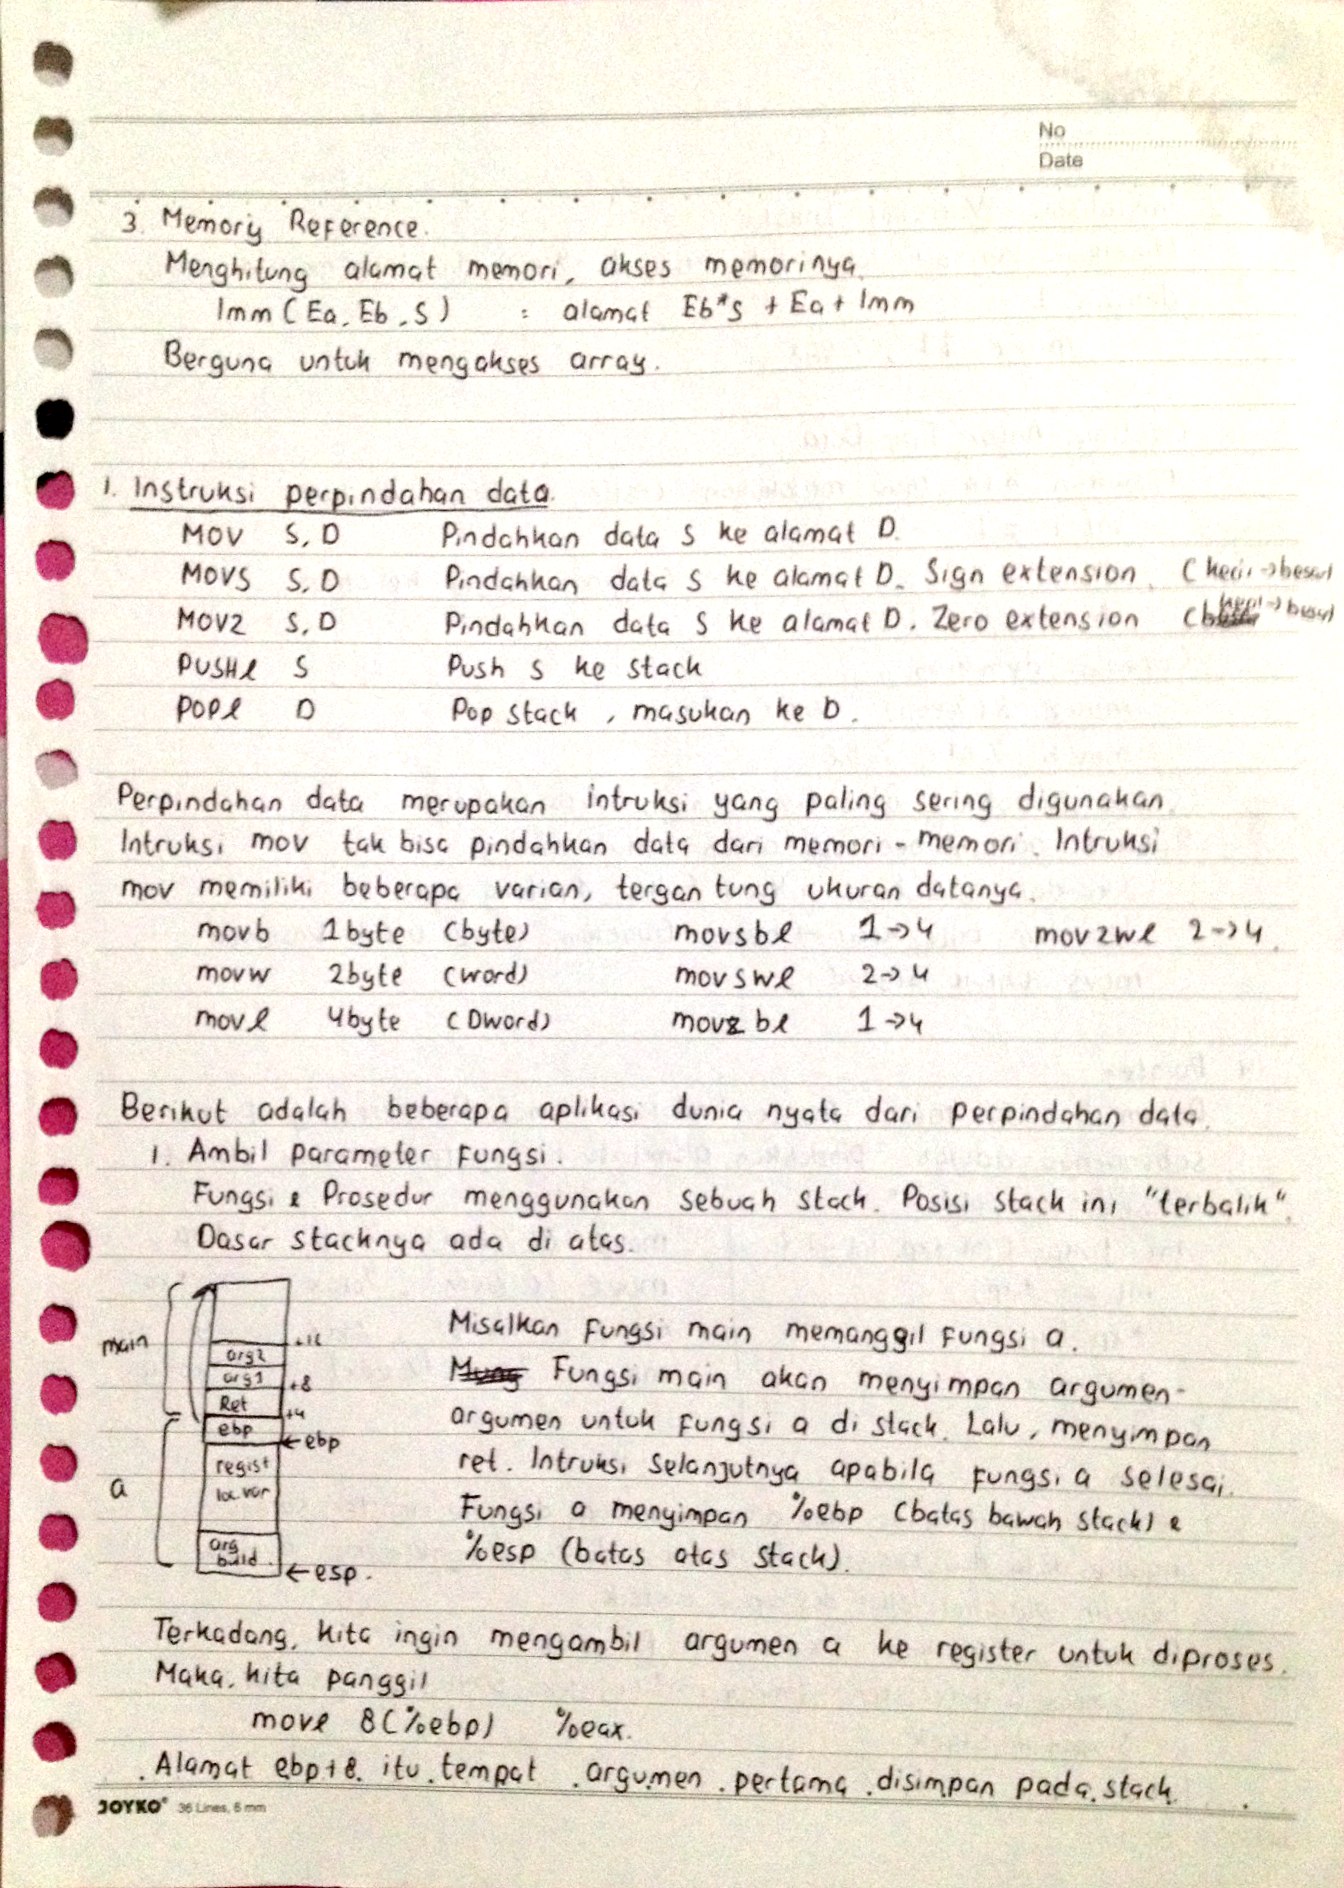 No
Date
3. Memory Reference.
Menghitung alamat memori, akses memorinya.
Imm (Ea, Eb, S) : alamat Eb*S + Ea + Imm
Berguna untuk mengakses array.
1. Instruksi perpindahan data.
MOV S, D Pindahkan data S ke alamat D.
MOVS S, D Pindahkan data S ke alamat D. Sign extension. (kecil → besar)
MOVZ S, D Pindahkan data S ke alamat D. Zero extension (kecil → besar)
PUSHl S Push S ke stack
POPl D Pop stack, masukan ke D.
Perpindahan data merupakan intruksi yang paling sering digunakan.
Intruksi mov tak bisa pindahkan data dari memori - memori. Intruksi
mov memiliki beberapa varian, tergantung ukuran datanya.
movb 1 byte (byte) movsbl 1→4 movzwl 2→4.
movw 2 byte (word) movswl 2→4
movl 4 byte (Dword) movzbl 1→4
Berikut adalah beberapa aplikasi dunia nyata dari perpindahan data.
1. Ambil parameter fungsi.
Fungsi & Prosedur menggunakan sebuah stack. Posisi stack ini "terbalik".
Dasar stacknya ada di atas.
main
arg2 +12
arg1 +8
Ret +4
ebp ←ebp
a
regist
loc. var
arg
build. ←esp.
Misalkan fungsi main memanggil fungsi a.
Fungsi main akan menyimpan argumen-
argumen untuk fungsi a di stack. Lalu, menyimpan
ret. Intruksi selanjutnya apabila fungsi a selesai.
Fungsi a menyimpan %ebp (batas bawah stack) &
%esp (batas atas stack).
Terkadang, kita ingin mengambil argumen a ke register untuk diproses.
Maka, kita panggil
movl 8(%ebp) %eax.
Alamat ebp+8 itu tempat argumen pertama disimpan pada stack
JOYKO® 36 Lines, 6 mm